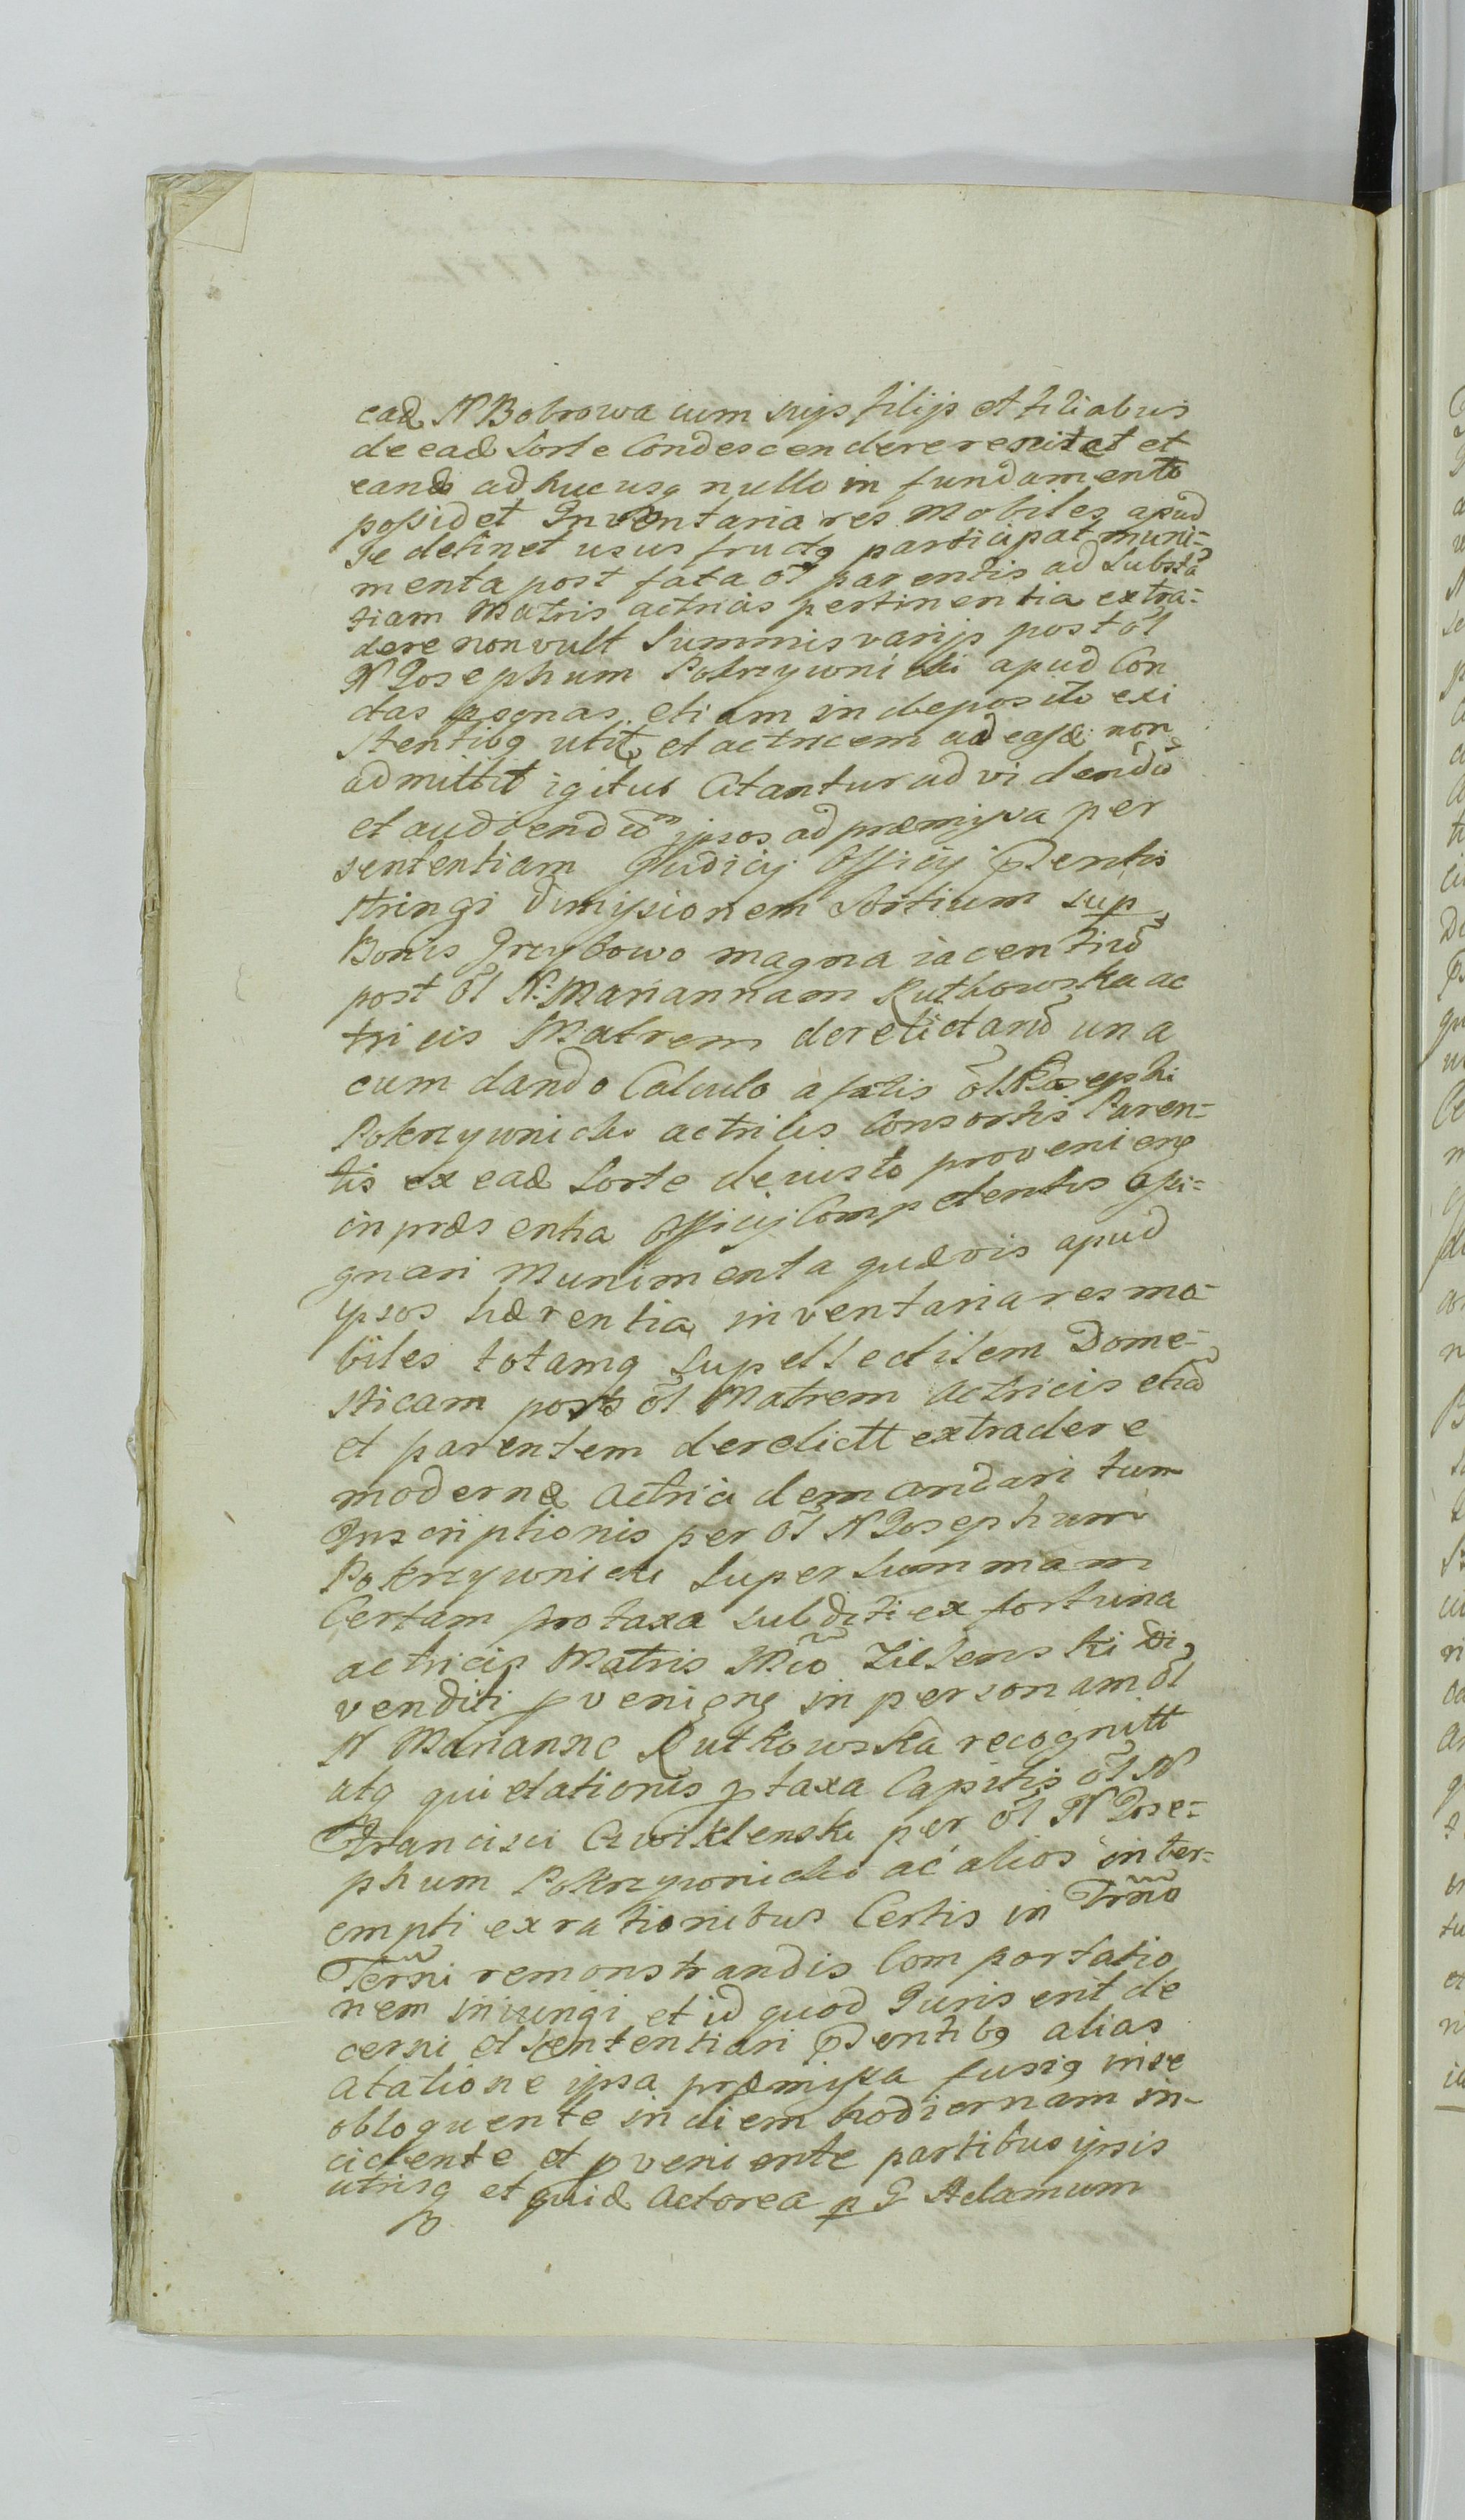 ead N Bobrowa cum suis filijs et filiabus
de ead Sorte Condescendere renitet et
eand ad hucusq nullo in fundamento
possidet Inventaria res Mobiles apud
se detinet usus fructq participat muni-
menta post fata ol parentis ad Substa
tiam Matris actricis pertinentia extra-
dere non vult Summis varijs post ol
N Josephum Pokrzywnicki apud Con
ctas psonas etiam in deposito exi
stentibq utit et actricem ad easd non
admittit igitur Citantur ad vidend
et audiendum ipsos ad præmissa per
sententiam Judicij Officij Pdentis
stringi dimissionem Sortium sup
Bonis Grzybowo magna iacentiu
post ol N: Mariannam Rutkowska ac
tricis Matrem derelictaru una
cum dando Calculo a fatis ol Josephi
Pokrzywnicki actricis Consortis Paren-
tis ex ead Sorte de iusto provenieng
in præsentia Officij Competentis assi-
gnari Munimenta quævis apud
ipsos hærentia inventaria res mo-
biles totamq Supellectilem Dome-
sticam post ol Matrem Actricis etia
et parentem derelictt extradere
modernæ Actrici demandari tum
Inscriptionis per ol N Josephum
Pokrzywnicki Super Summam
Certam pro taxa subditi ex fortuna
actricis Matris Mco Zielenski di
venditi pvenieng in personam ol
N Marianne Rutkowska recognitt
atq quietationis p taxa Capitis ol N
Francisci Cwiklenski per ol N Jose-
phum Pokrzywnicki ac alios inter-
empti ex rationibus Certis in Trno
Terni remonstrandis Comportatio
nem iniungi et id quod Juris erit de
cerni et sententiari Pdentibq alias
Citatione ipsa præmissa fusiq in se
obloquente in diem hodiernam in-
cidente et pveniente partibus ipsis
utrisq et quid Actorea p G Adamum